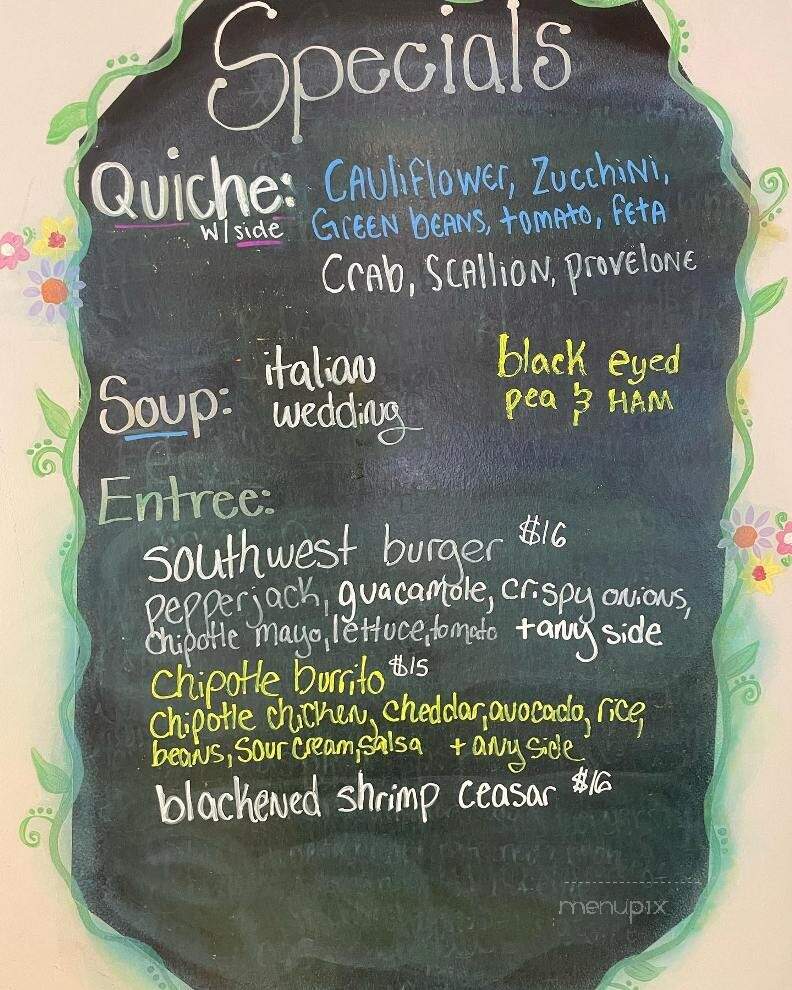 Specials
Quiche: Cauliflower, Zucchini,
w/side Green beans, tomato, feta
Crab, Scallion, provelone
Soup: italian wedding
black eyed pea & HAM
Entree:
southwest burger $16
pepperjack, guacamole, crispy onions,
chipotle mayo, lettuce, tomato + any side
chipotle burrito $15
chipotle chicken, cheddar, avocado, rice,
beans, sour cream, salsa + any side
blackened shrimp ceasar $16
menupix